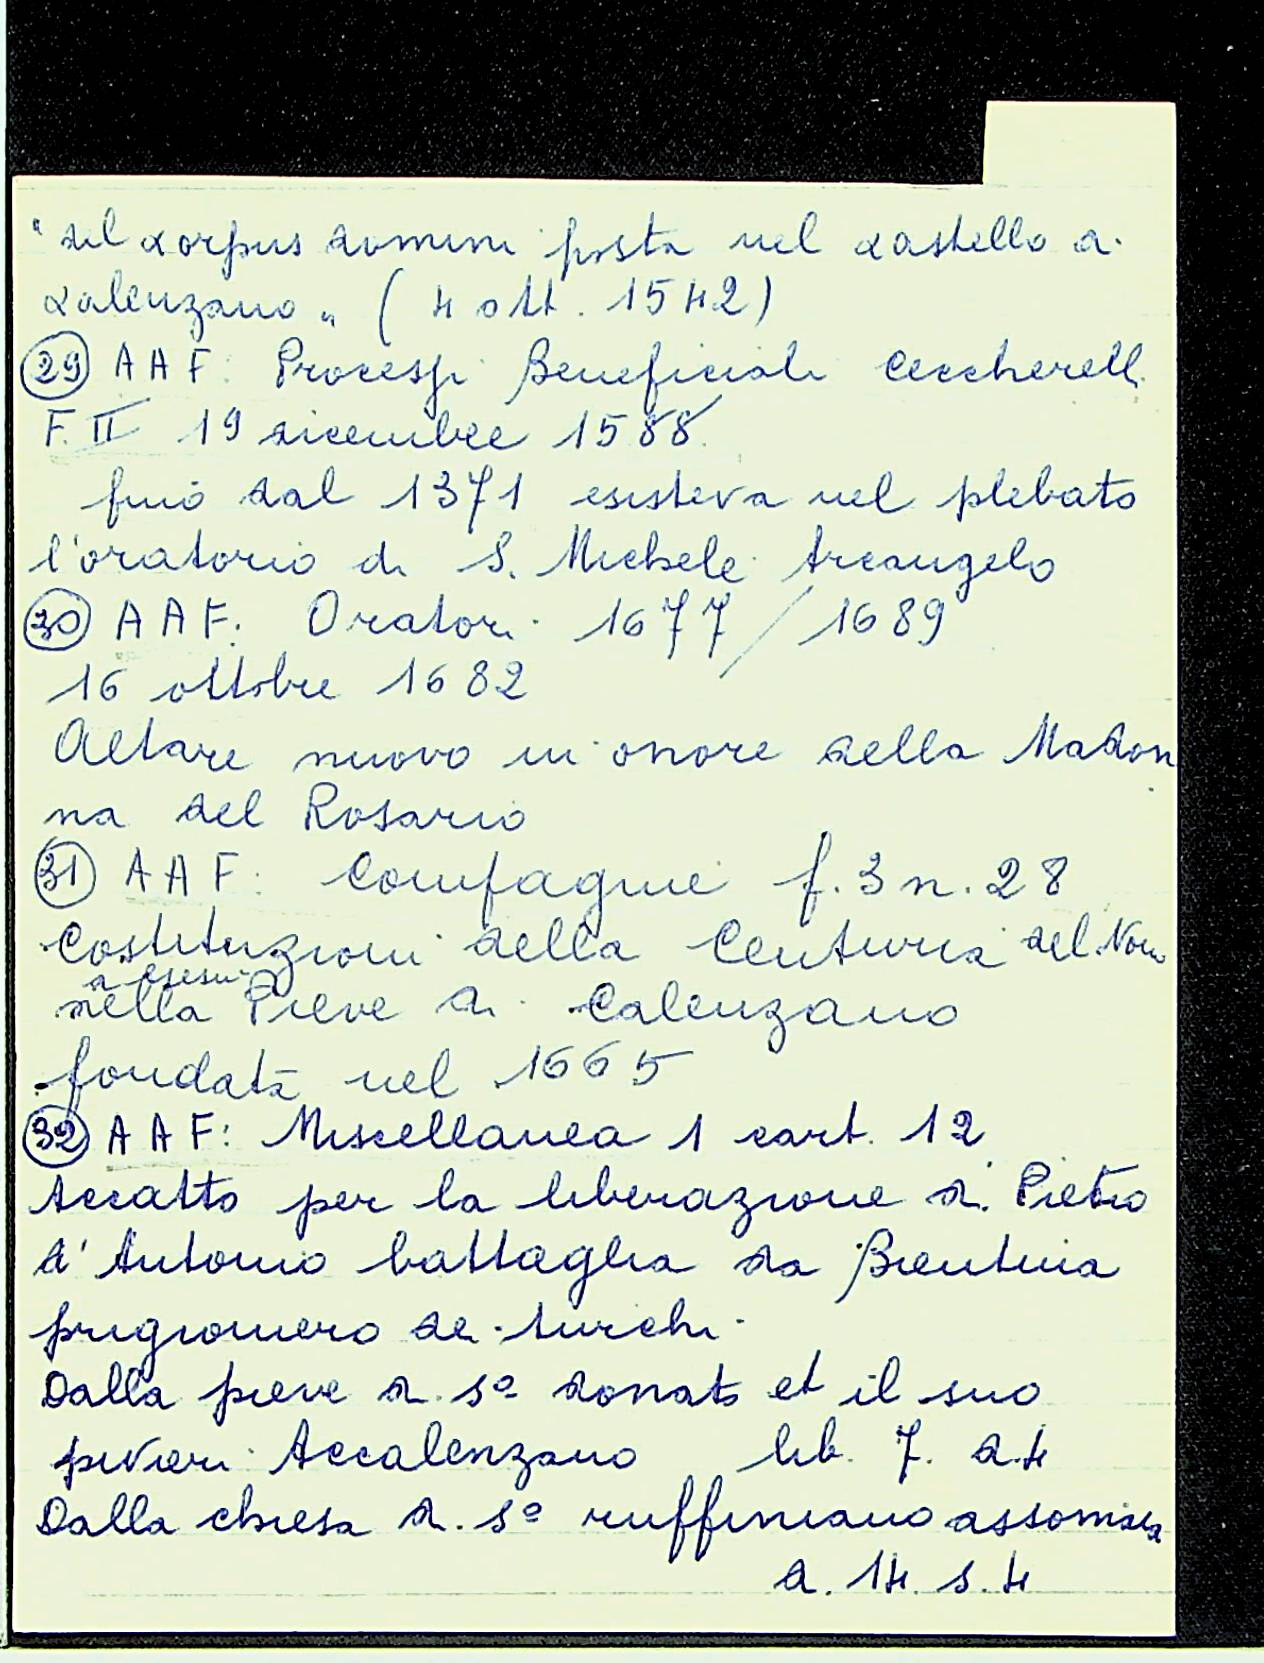 "del corpus domini posta nel castello a.
calenzano" (4 ott. 1542)
29 AAF: Processi Beneficiali Ceccherelli
F. II 19 dicembre 1588
fino dal 1371 esisteva nel plebato
l'oratorio di S. Michele Arcangelo
30 AAF. Oratori 1677/1689
16 ottobre 1682
Altare nuovo in onore della Madon
na del Rosario
31 AAF: Compagnie f. 3 n. 28
Costituzioni della Centuria del Nom
nella Pieve di Calenzano
fondata nel 1665
32 AAF: Miscellanea 1 cart. 12
Accatto per la liberazione di Pietro
d'Antonio battaglia da Bientina
prigioniero de turchi
Dalla pieve di Sº donato et il suo
pivieri Accalenzano lib. 7. d.4
Dalla chiesa di Sº ruffiniano assomaia
d. 14. s. 4